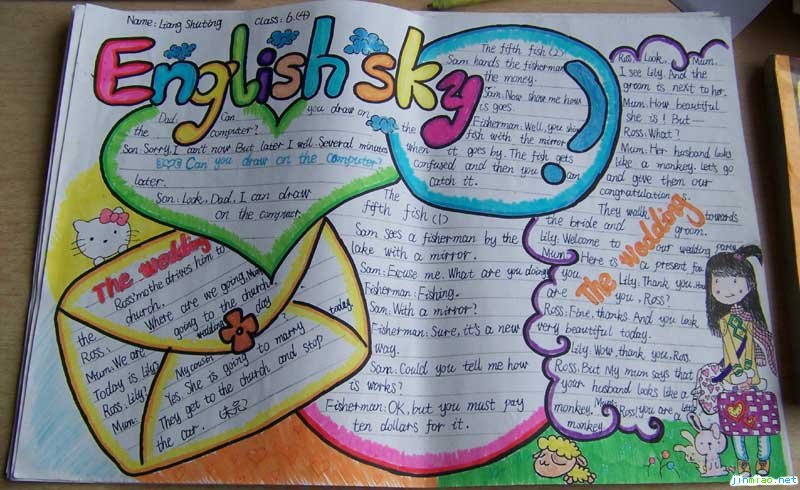 Name: Liang Shuting Class: 6.(4)
English sky
Dad: Can you draw on
the computer?
Son: Sorry, I can't now. But later I will. Several minutes
Can you draw on the computer?
later.
Son: Look, Dad, I can draw
on the computer.
The wedding
Ross' mother drives him to
the church.
Ross: Where are we going, Mum?
Mum: We are going to the church.
Today is Lily's wedding day
Ross: Lily?
Mum: My cousin
today
?
Yes. She is going to marry
They get to the church and stop
the car.
The
fifth fish (1)
Sam sees a fisherman by the
lake with a mirror.
Sam: Excuse me. What are you doing
Fisherman: Fishing.
Sam: With a mirror?
Fisherman: Sure, it's a new
way.
Sam: Could you tell me how
is works?
Fisherman: OK, but you must pay
ten dollars for it.
The fifth fish (2)
Sam hands the fisherman
the money.
Sam: Now show me how
is goes.
Fisherman: Well, you shine
the fish with the mirror
when it goes by. The fish gets
confused and then you can
catch it.
!
Ross: Look, Mum.
I see Lily. And the
groom is next to her.
Mum: How beautiful
she is! But—
Ross: What?
Mum: Her husband looks
like a monkey. Let's go
and give them our
congratulation
They walk towards
the bride and groom.
Lily: Welcome to our wedding party
Mum: Here is a present for
you.
The wedding
Lily: Thank you. How
are you, Ross?
Ross: Fine, thanks. And you look
very beautiful today.
Lily: Wow, thank you, Ross.
Ross: But My mum says that
your husband looks like a
monkey.
Mum: Ross! you are a little
monkey
jinmiao.net